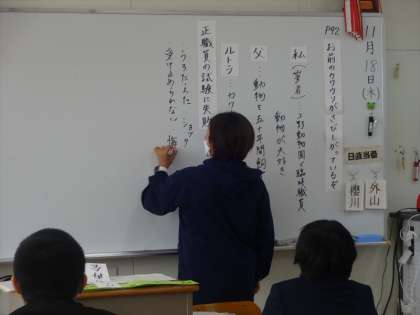 11月18日(木)
日直当番
外山
櫻川
P92
お前のカワウソがさびしがっているぞ
私(筆者)…上野動物園の臨時職員
動物が大好き
父…動物を五十年間飼
ルトラ…カワ
正職員の試験に失敗
うろたえた ショック
受け止められない